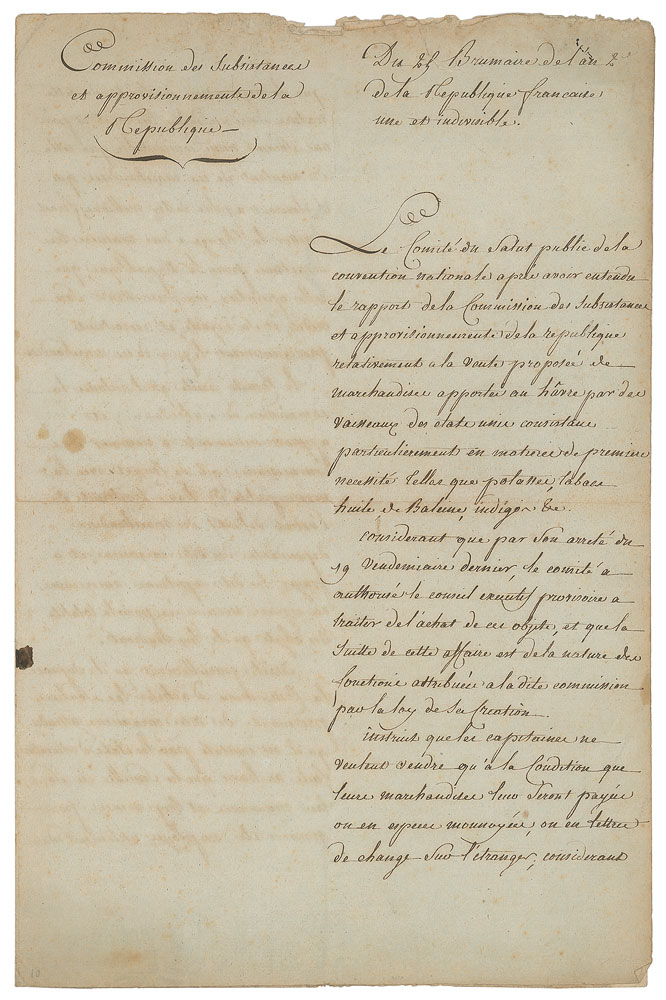 Commission des Subsistances
et approvisionnements de la
République
Du 25 Brumaire de l'an 2e
de la République francaise
une et indivisible.
Le Comité du Salut public de la
convention nationale après avoir entendu
le rapport de la Commission des Subsistances
et approvisionnements de la république
relativement a la Vente proposée de
marchandises apportées au hâvre par des
Vaisseaux des états unis consistans
particulierement en matieres de premiere
necessité telles que potasses, tabacs
huile de Baleine, indigos &c.
Considerant que par Son arreté du
19 Vendemiaire dernier, le comité a
authorisé le conseil executif provisoire a
traiter de l'achat de ces objets, et que la
Suitte de cette affaire est de la nature des
fonctions attribuées a la dite commission
par la loy de Sa Création.
instruit que les capitaines ne
Veulent Vendre qu'à la Condition que
leurs marchandises leur Seront payées
ou en especes monnoyées, ou en lettres
de change Sur l'étranger, considerant